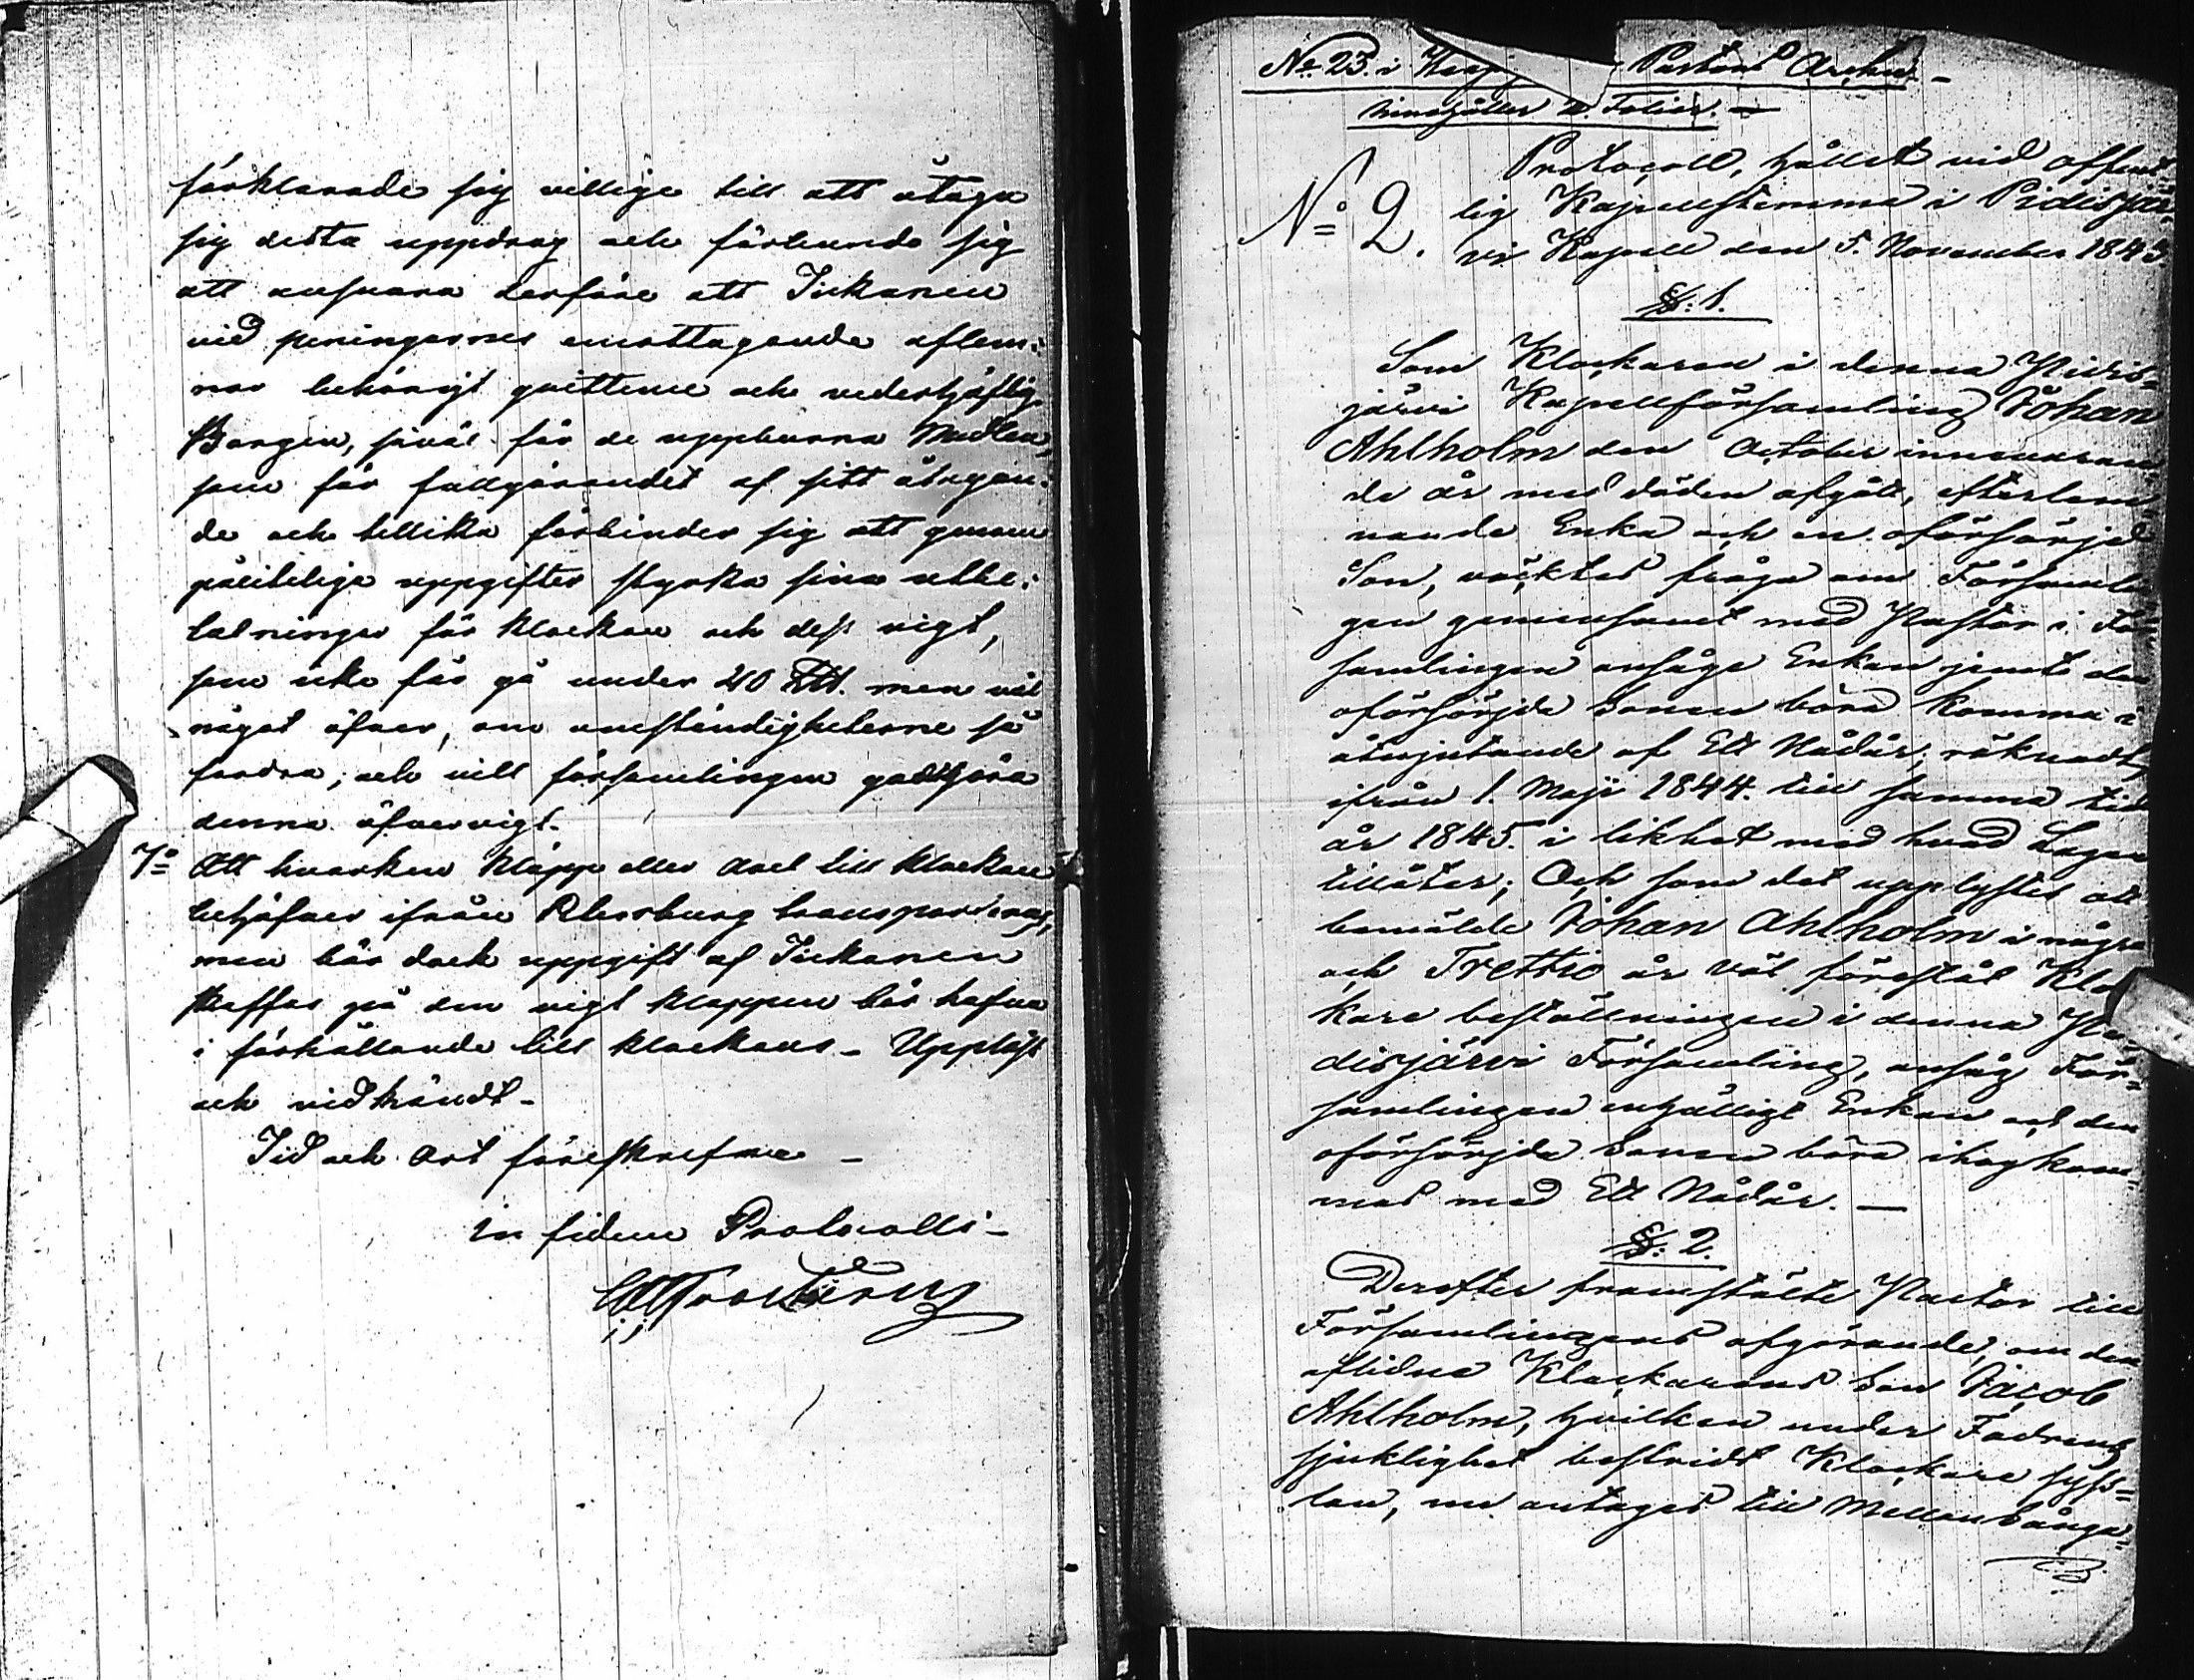 förklarade sig villige till att åtaga
sig detta uppdrag och förbundo sig
att ansvara derföre att Iickanen
vid penningarnes emottagande aflem:
nar behörigt qvittence och vederhäftig
Borgen, såväl för de uppburna Medlen,
som för fullgörandet af sitt åtagan:
de och tillika förbinder sig att genom
pålitelige uppgifter styrka sina utbe:
talningar för klockan och dess vigt,
som icke får gå under 40 men väl
något öfver, om omständigheterne så
fordra, och vill församlingen godtgöra
denna öfvervigt.
7o Att hvarken kläpp eller axel till klockan
behöfver ifrån Petersburg transporteras,
men bör dock uppgift af Iickanen
skaffas på den vigt kläppen bör hafva
i förhållande till klockans – Uppläst
och vidkändt –
Tid och Ort föreskrefne –
in fidem Protocolli –
No 23. i Pastors Archiv –
innehåller Folier. –
Protocoll, hållet vid offent=
No 2. lig Kapellstemma i Pidisjär=
vi Kapell den 5. November 1843.
§. 1.
Som Klockaren i denna Pidis=
järvi Kapellförsamling Johan
Ahlholm den October innevaran
de år med döden afgått, efterlem=
nande Enka och en oförsörjd
Son, väcktes fråga om Församlin
gen gemensamt med Pastor i För
samlingen ansåge Enkan jemte den
oförsörjde Sonen böra komma i
åtnjutande af Ett Nådår, räknadt
ifrån 1. Maji 1844. till samma tid
år 1845. i likhet med hvad Lagen
tillåter; Och som det upplystes att
bemälde Johan Ahlholm i några
och Trettio år väl förestått Kloc
kare beställningen i denna Pi=
disjärvi Församling, ansåg För=
samlingen enhälligt Enkan och den
oförsörjde Sonen böra ihogkom=
mas med Ett Nådår. –
§. 2.
Derefter framstälte Pastor till
Församlingens afgörande, om den
aflidne Klockarens Son Jacob
Ahlholm, hvilken under Fadrens
sjuklighet bestridt Klockare syss=
lan, nu antages till Mellansånga=